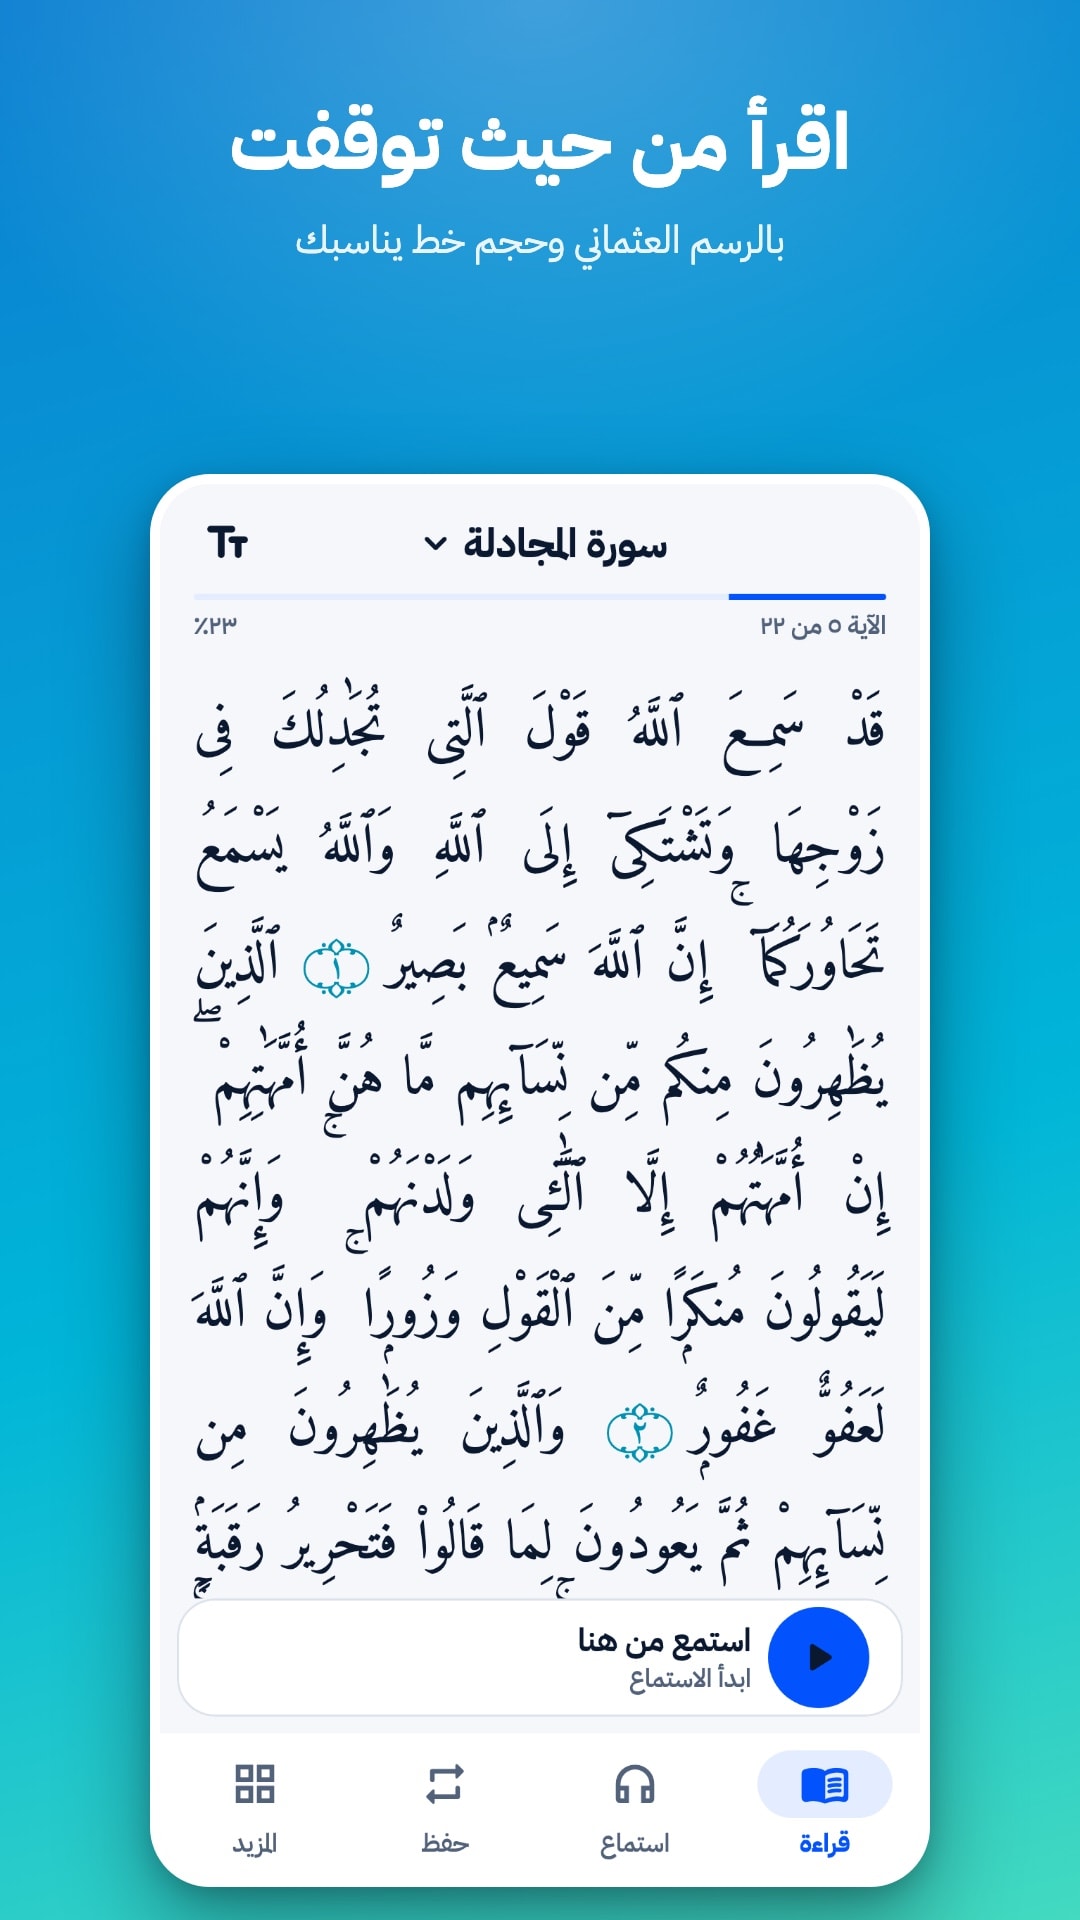 اقرأ من حيث توقفت
بالرسم العثماني وحجم خط يناسبك
سورة المجادلة
الآية ٥ من ٢٢
٢٣٪
قَدْ سَمِعَ ٱللَّهُ قَوْلَ ٱلَّتِى تُجَٰدِلُكَ فِى
زَوْجِهَا وَتَشْتَكِىٓ إِلَى ٱللَّهِ وَٱللَّهُ يَسْمَعُ
تَحَاوُرَكُمَآ ۚ إِنَّ ٱللَّهَ سَمِيعٌۢ بَصِيرٌ ١ ٱلَّذِينَ
يُظَٰهِرُونَ مِنكُم مِّن نِّسَآئِهِم مَّا هُنَّ أُمَّهَٰتِهِمْ ۖ
إِنْ أُمَّهَٰتُهُمْ إِلَّا ٱلَّٰٓـِٔى وَلَدْنَهُمْ ۚ وَإِنَّهُمْ
لَيَقُولُونَ مُنكَرًۭا مِّنَ ٱلْقَوْلِ وَزُورًۭا ۚ وَإِنَّ ٱللَّهَ
لَعَفُوٌّ غَفُورٌۭ ٢ وَٱلَّذِينَ يُظَٰهِرُونَ مِن
نِّسَآئِهِمْ ثُمَّ يَعُودُونَ لِمَا قَالُوا۟ فَتَحْرِيرُ رَقَبَةٍۢ
استمع من هنا
ابدأ الاستماع
قراءة
استماع
حفظ
المزيد
TT